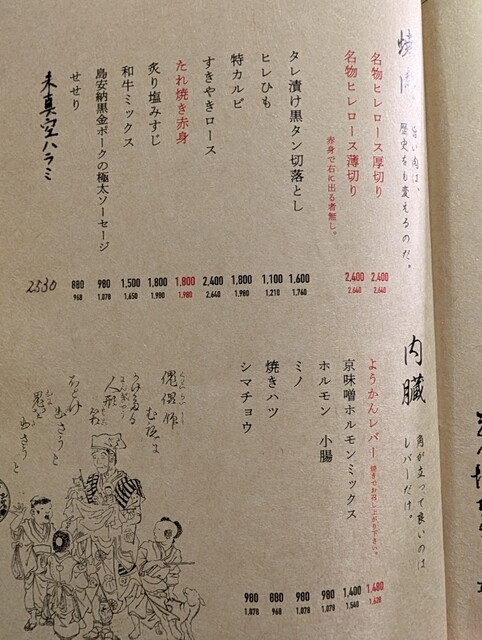 焼肉
い肉は、
歴史をも変えるのだ。
名物ヒレロース厚切り
2,400
2,640
名物ヒレロース薄切り
2,400
2,640
赤身で右に出る者無し。
タレ漬け黒タン切落とし
1,600
1,760
ヒレひも
1,100
1,210
特カルビ
1,800
1,980
すきやきロース
2,400
2,640
たれ焼き赤身
1,800
1,980
炙り塩みすじ
1,800
1,980
和牛ミックス
1,500
1,650
島安納黒金ポークの極太ソーセージ
980
1,078
せせり
880
968
未真空ハラミ
2530
内臓
角が立つて良いのは
レバーだけ。
ようかんレバー 焼きでお召し上がり下さい。
1,480
1,628
京味噌ホルモンミックス
1,400
1,540
ホルモン 小腸
980
1,078
ミノ
980
1,078
焼きハツ
880
968
シマチョウ
980
1,078
傀儡師
人形
出さうと
鬼を
出さうと